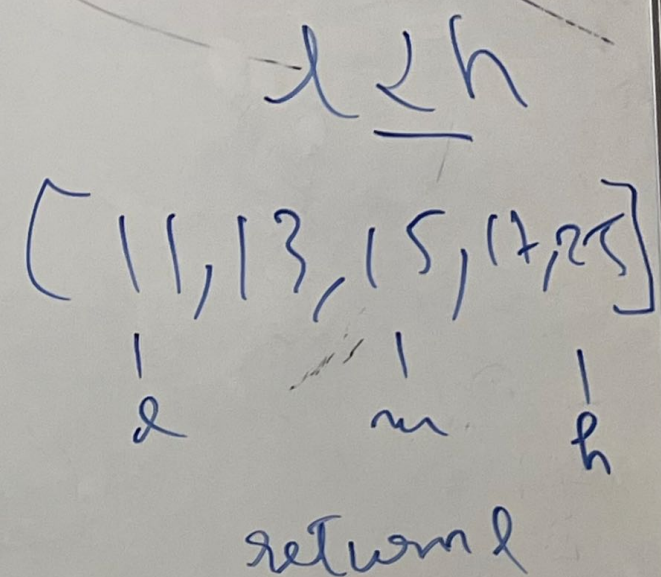 l ≤ h
[11, 13, 15, 17, 25]
l m h
return l